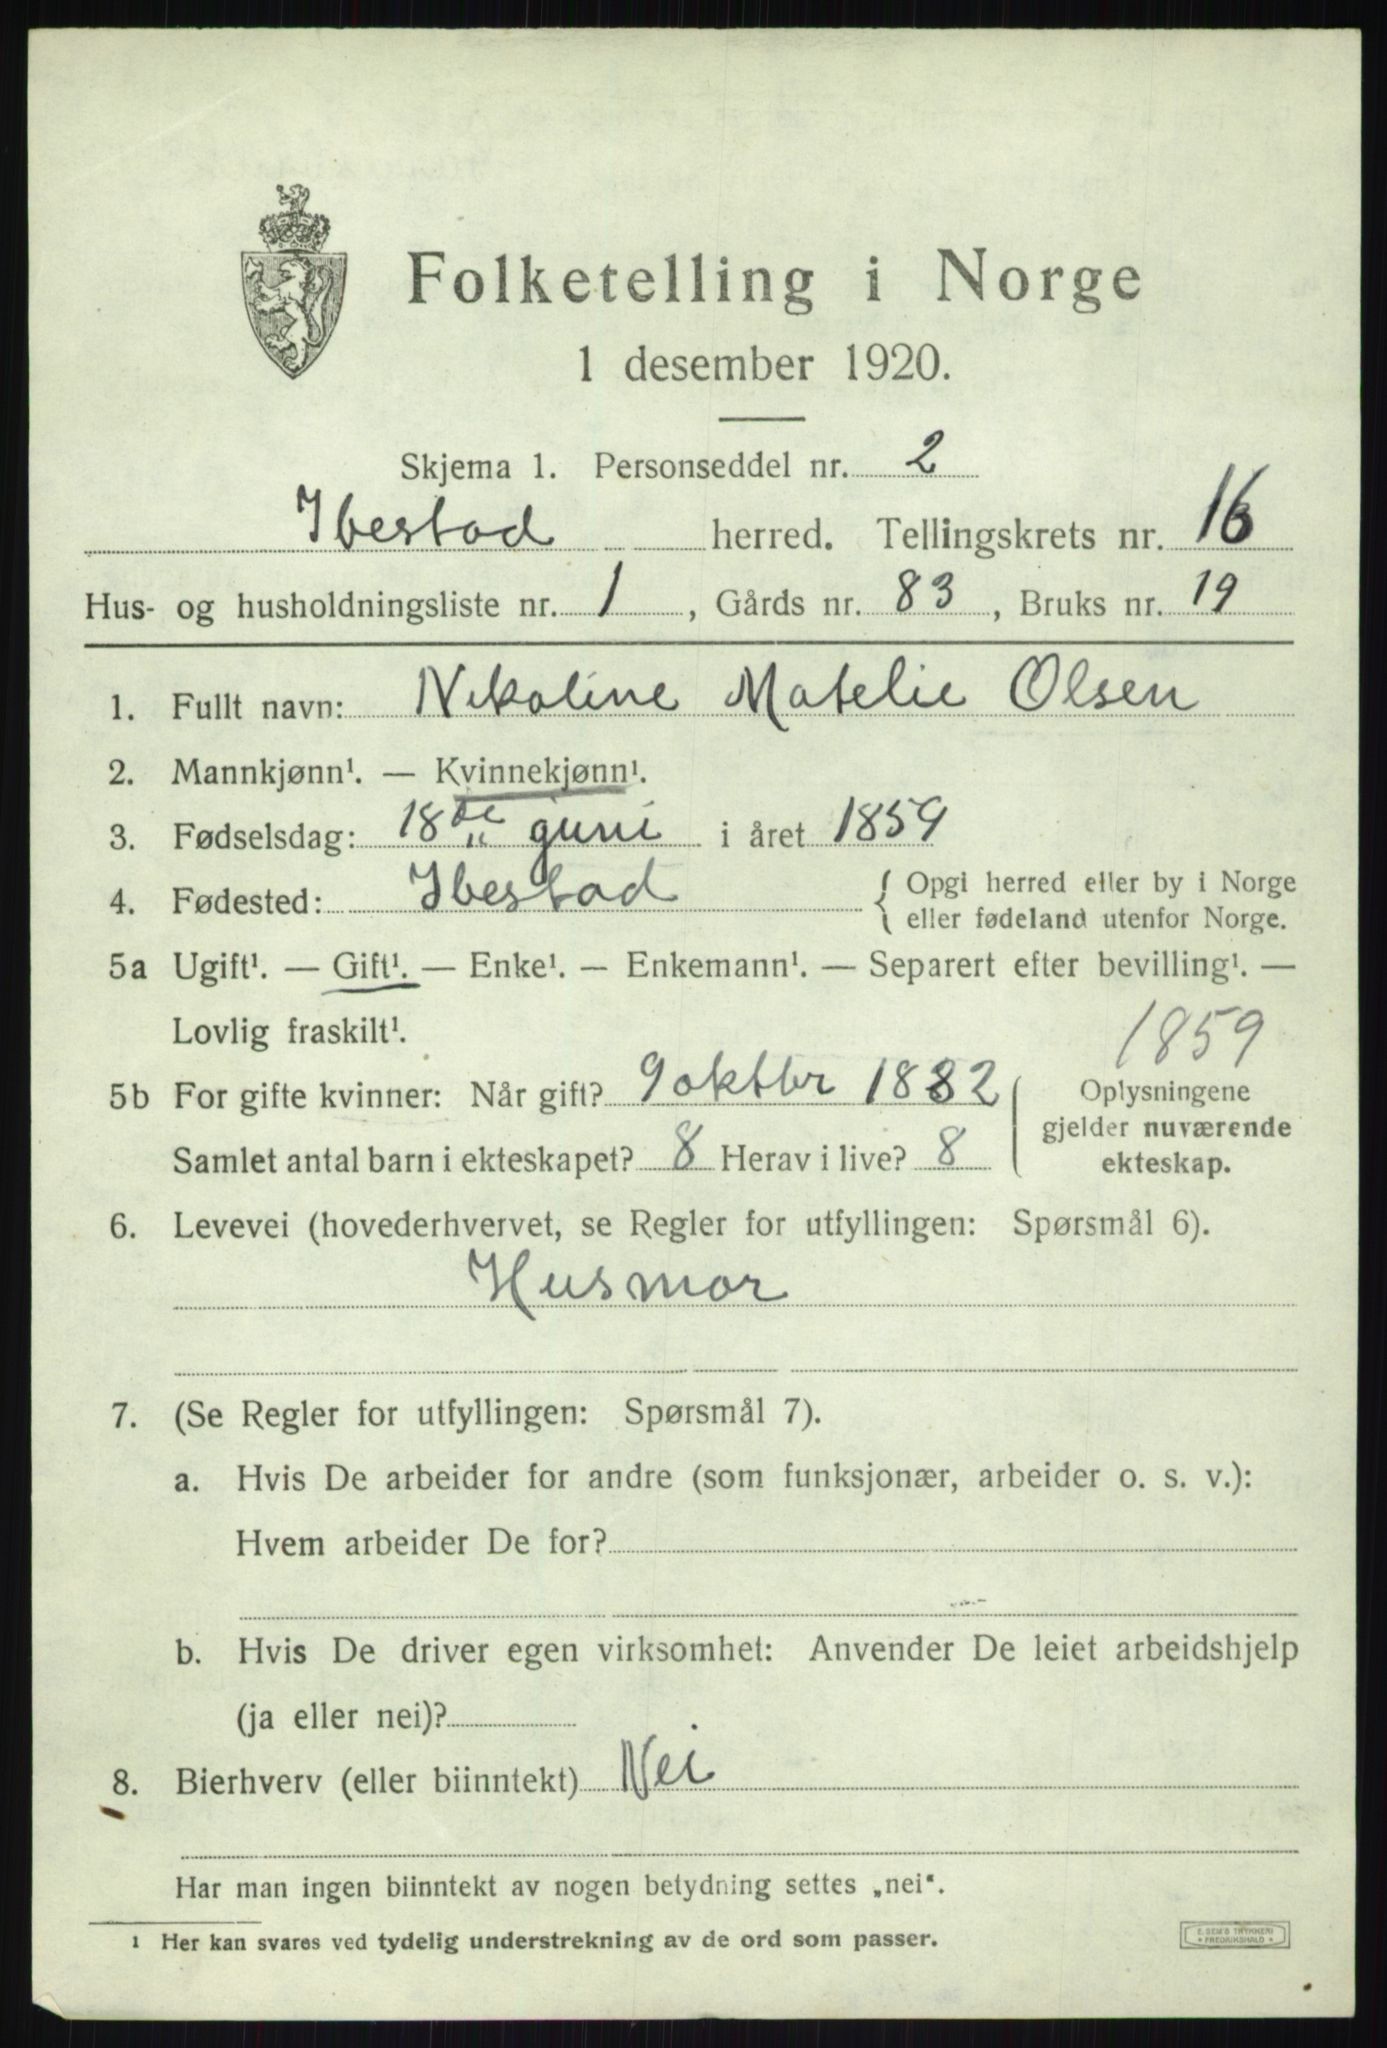 Folketelling i Norge
1 desember 1920.
Skjema 1. Personseddel nr. 2
Ibestad herred. Tellingskrets nr. 16
Hus- og husholdningsliste nr. 1, Gårds nr. 83, Bruks nr. 19
1. Fullt navn: Nikoline Matelie Olsen
2. Mannkjønn¹. — Kvinnekjønn¹.
3. Fødselsdag: 18de juni i året 1859
4. Fødested: Ibestad { Opgi herred eller by i Norge
eller fødeland utenfor Norge.
5a Ugift¹. — Gift¹. — Enke¹. — Enkemann¹. — Separert efter bevilling¹. —
Lovlig fraskilt¹.
1859
5b For gifte kvinner: Når gift? 9 oktbr 1882
Samlet antal barn i ekteskapet? 8 Herav i live? 8
Oplysningene
gjelder nuværende
ekteskap.
6. Levevei (hovederhvervet, se Regler for utfyllingen: Spørsmål 6).
Husmor
7. (Se Regler for utfyllingen: Spørsmål 7).
a. Hvis De arbeider for andre (som funksjonær, arbeider o. s. v.):
Hvem arbeider De for?
b. Hvis De driver egen virksomhet: Anvender De leiet arbeidshjelp
(ja eller nei)?
8. Bierhverv (eller biinntekt) Nei
Har man ingen biinntekt av nogen betydning settes „nei“.
¹ Her kan svares ved tydelig understrekning av de ord som passer.
E. SEM'S TRYKKERI
* FREDRIKSHALD *